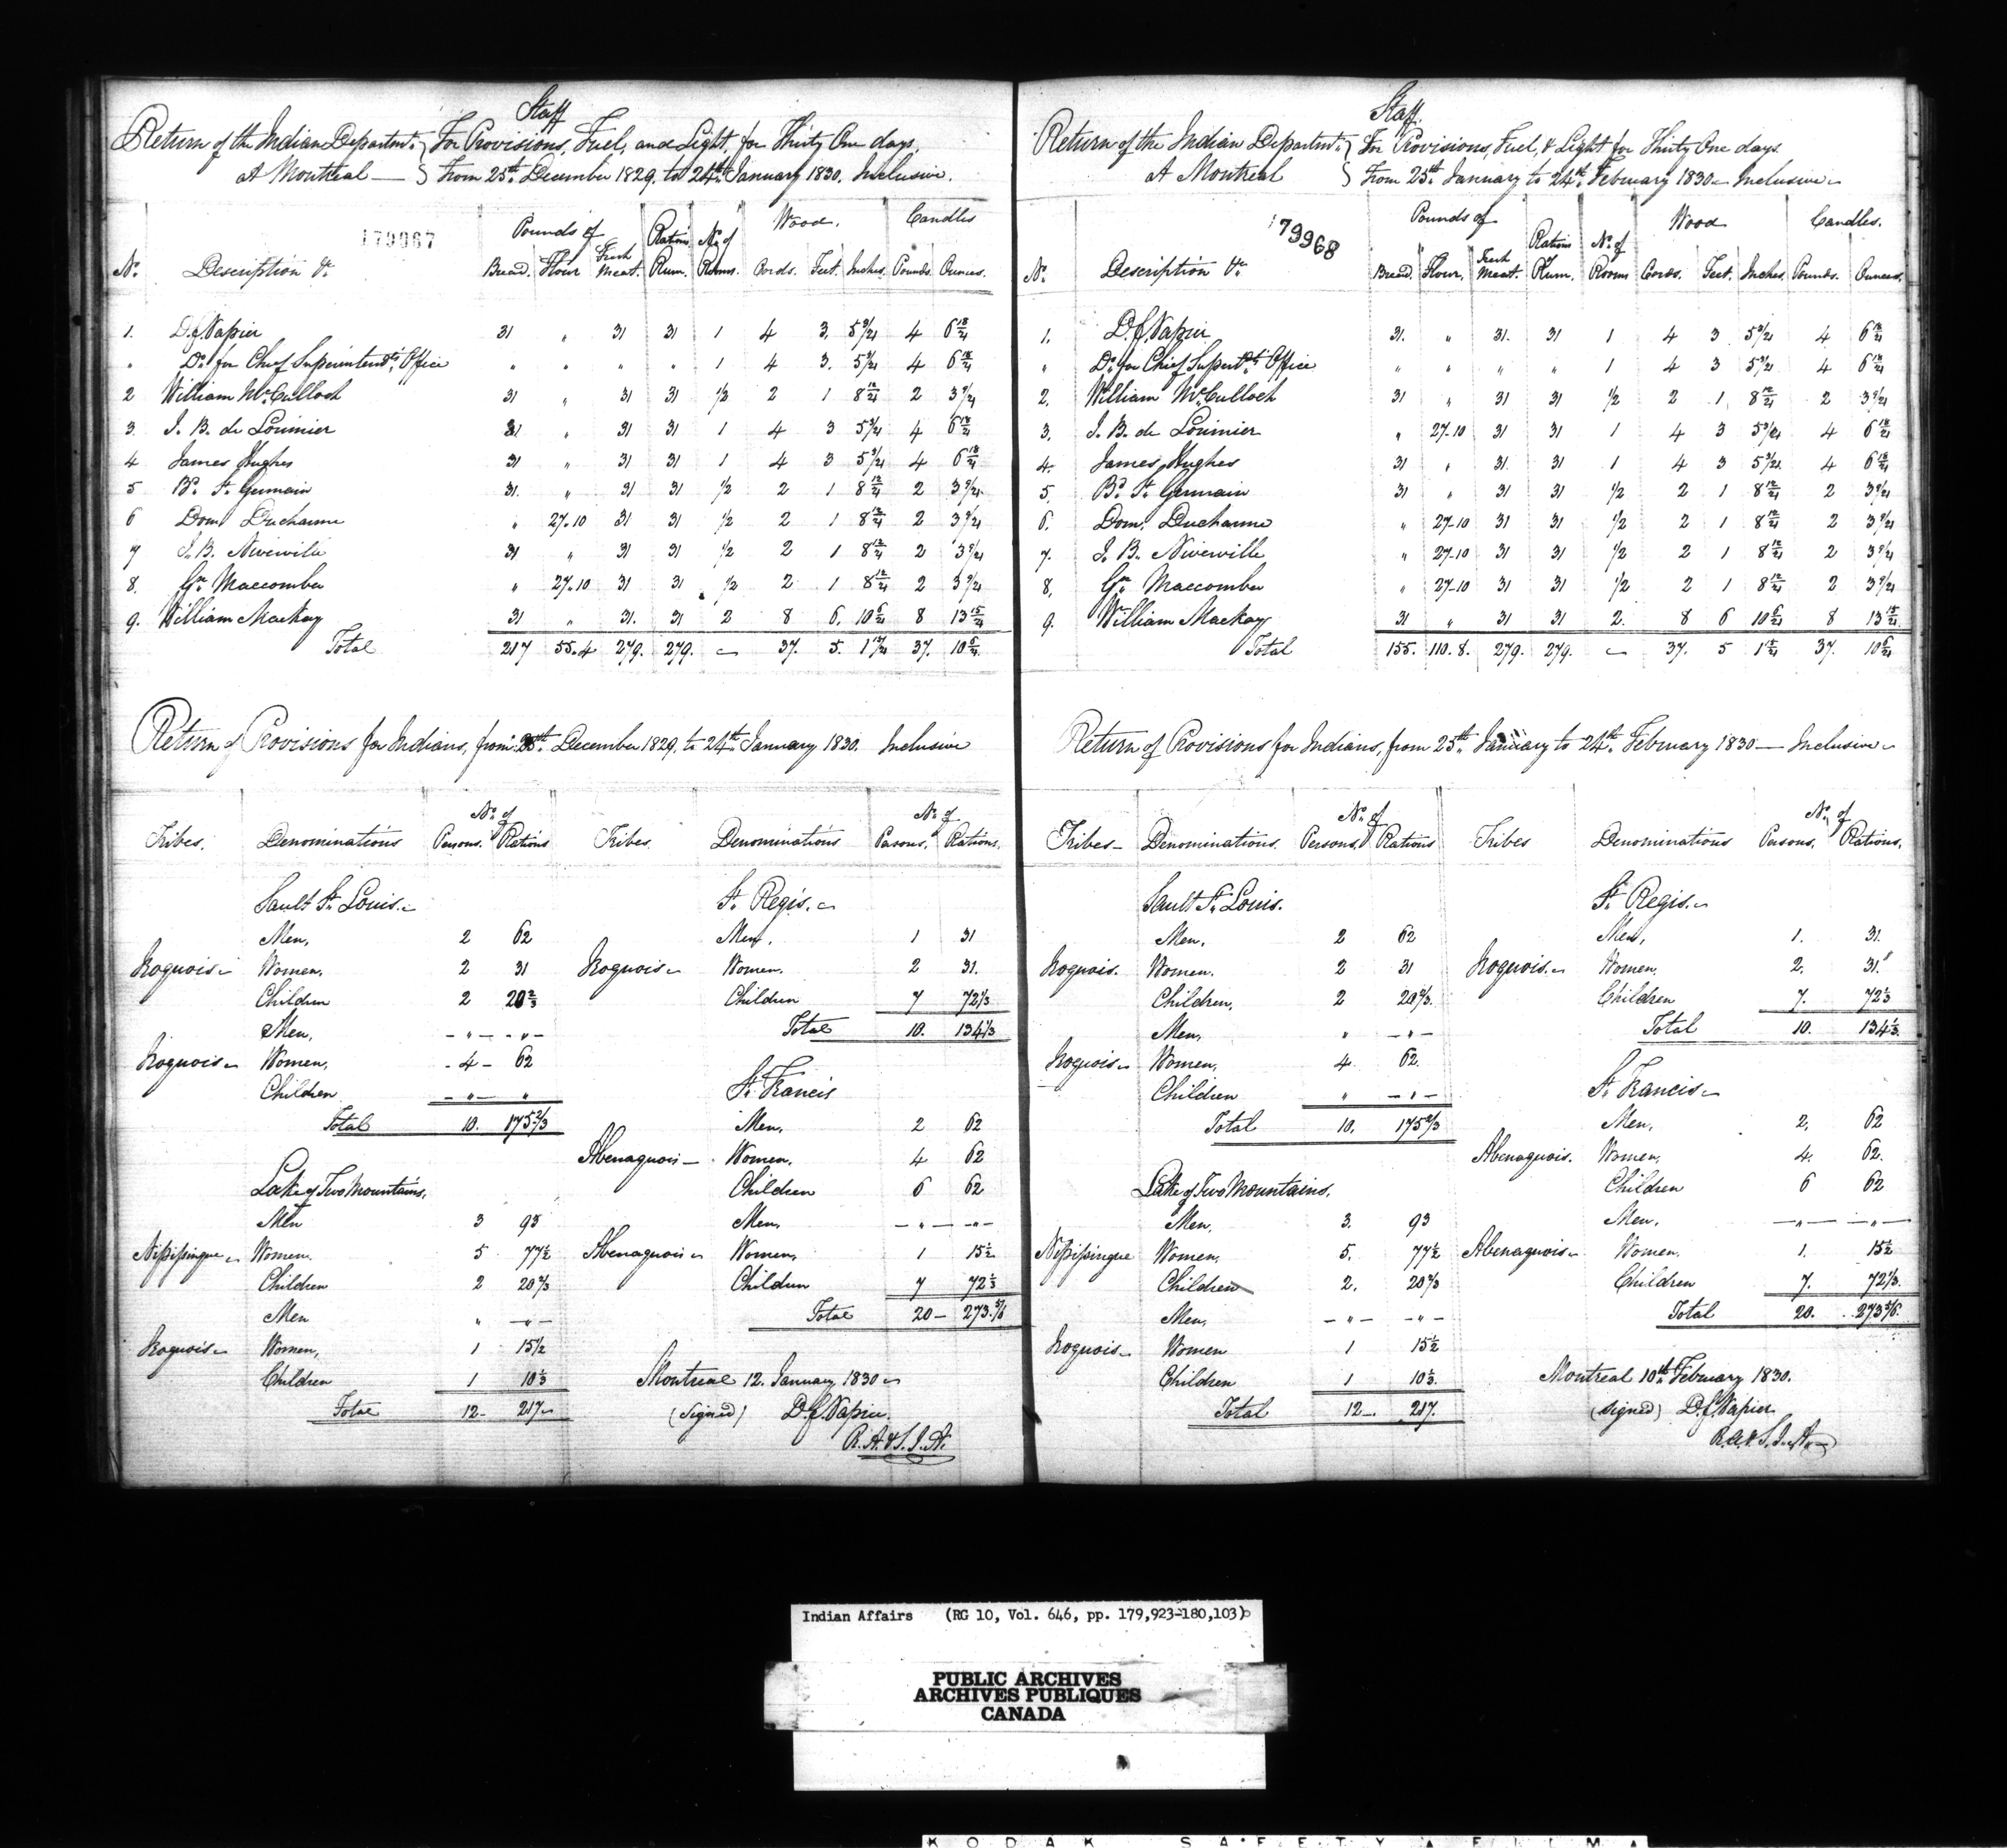 Staff
Return of the Indian Departmt. } For Provisions, Fuel, and Light, for Thirty One days,
At Montreal — } From 25th December 1829. to 24th January 1830. Inclusive.
179967
Pounds of Rations No. of Wood. Candles
No. Description &c. Bread. Flour Fresh Meat. Rum. Rooms. Cords. Feet. Inches. Pounds. Ounces.
1. D.C. Napier 31 " 31 31 1 4 3. 5 9/21 4 6 18/21
" Do. for Chief Superintendts. Office " " " " 1 4 3. 5 9/21 4 6 18/21
2 William McCulloch 31 " 31 31 1/2 2 1 8 12/21 2 3 9/21
3. J. B. de Lorimier 31 " 31 31 1 4 3 5 9/21 4 6 18/21
4 James Hughes 31 " 31 31 1 4 3 5 9/21 4 6 18/21
5 Bd. St. Germain 31. " 31 31 1/2 2 1 8 12/21 2 3 9/21
6 Dom. Ducharme " 27.10 31 31 1/2 2 1 8 12/21 2 3 9/21
7 J. B. Niverville 31 " 31 31 1/2 2 1 8 12/21 2 3 9/21
8. Gn. Maccomber " 27.10 31 31 1/2 2 1 8 12/21 2 3 9/21
9. William Mackay 31 " 31. 31 2 8 6. 10 6/21 8 13 15/21
Total 217 55.4 279. 279. 37. 5. 1 15/21 37. 10 6/21
Return of Provisions for Indians, from 25th December 1829, to 24th January 1830. Inclusive
No. of No. of
Tribes. Denominations Persons. Rations Tribes. Denominations Persons. Rations.
Sault St. Louis. St. Regis.
Men, 2 62 Men, 1 31
Iroquois Women, 2 31 Iroquois Women. 2 31.
Children 2 20 2/3 Children 7 72 1/3
Men, - " - - " - Total 10. 134 1/3
Iroquois Women, - 4 - 62
Children - " - " St. Francis
Total 10. 175 2/3 Men, 2 62
Abenaquois — Women. 4 62
Lake of Two Mountains. Children 6 62
Men 3 93 Men. - " - - " -
Nipissingue Women. 5 77 1/2 Abenaquois Women, 1 15 1/2
Children 2 20 2/3 Children 7 72 1/3
Men " - " - Total 20 - 273 5/6
Iroquois Women, 1 15 1/2
Children 1 10 1/3 Montreal 12. January 1830
Total 12 - 217 (Signed) D.C. Napier.
R.A. & S.I.A.
Staff.
Return of the Indian Departmt. } For Provisions, Fuel, & Light for Thirty One days
At Montreal } From 25th January to 24th February 1830 Inclusive
179968
Pounds of Rations of No. of Wood Candles.
No. Description &c. Bread. Flour. Fresh Meat. Rum. Rooms Cords. Feet. Inches. Pounds. Ounces.
1. D.C. Napier 31. " 31. 31 1 4 3 5 9/21 4 6 18/21
" Do. for Chief Superdts. Office " " " " 1 4 3 5 9/21 4 6 18/21
2. William McCulloch 31 " 31 31 1/2 2 1 8 12/21 2 3 9/21
3. J. B. de Lorimier " 27.10 31 31 1 4 3 5 9/21 4 6 18/21
4. James Hughes 31 " 31 31 1 4 3 5 9/21 4 6 18/21
5. Bd. St. Germain 31 " 31 31 1/2 2 1 8 12/21 2 3 9/21
6. Dom. Ducharme " 27.10 31 31 1/2 2 1 8 12/21 2 3 9/21
7. J. B. Niverville " 27.10 31 31 1/2 2 1 8 12/21 2 3 9/21
8. Gn. Maccomber " 27.10 31 31 1/2 2 1 8 12/21 2 3 9/21
9. William Mackay 31 " 31 31 2. 8 6 10 6/21 8 13 15/21
Total 155. 110.8. 279. 279. 37. 5 1 15/21 37. 10 6/21
Return of Provisions for Indians, from 25th January to 24th February 1830 — Inclusive
No. of No. of
Tribes — Denominations. Persons. Rations Tribes Denominations Persons. Rations.
Sault St. Louis. St. Regis.
Men, 2 62 Men, 1. 31.
Iroquois. Women. 2 31 Iroquois. Women. 2. 31.
Children, 2 20 2/3 Children 7. 72 1/3
Men, " - " - Total 10. 134 1/3
Iroquois Women, 4 62.
Children " - " - St. Francis
Total 10. 175 2/3 Men, 2. 62
Abenaquois. Women, 4. 62.
Lake of Two Mountains. Children 6 62
Men, 3. 93 Men. — " — — " —
Nipissingue Women, 5. 77 1/2 Abenaquois Women. 1. 15 1/2
Children 2. 20 2/3 Children 7. 72 1/3.
Men, - " - - " - Total 20. 273 5/6.
Iroquois Women 1 15 1/2
Children 1 10 1/3 Montreal 10th February 1830.
Total 12 — 217. (Signed) D.C. Napier
R.A. & S.I.A.
Indian Affairs (RG 10, Vol. 646, pp. 179,923-180,103)
PUBLIC ARCHIVES
ARCHIVES PUBLIQUES
CANADA
KODAK SAFETY FILM